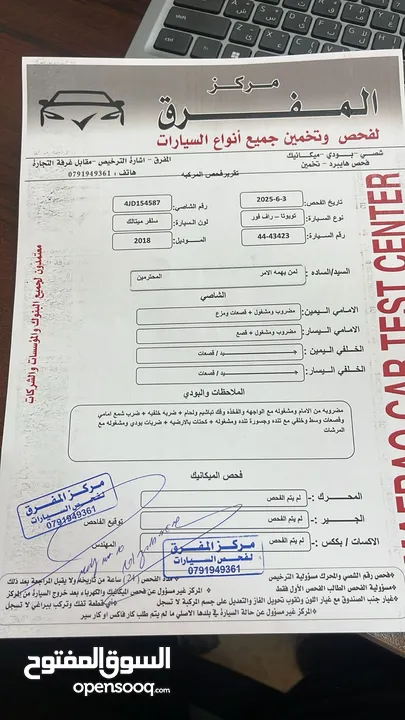 مركز
المفرق
لفحص وتخمين جميع أنواع السيارات
شصي -بودي -ميكانيك
فحص هايبرد - تخمين
المفرق - اشارة الترخيص -مقابل غرفة التجارة
هاتف : 0791949361
تقرير فحص المركبه
تاريخ الفحص: 2025-6-3
رقم الشاصي: 4JD154587
نوع السيارة: تويوتا – راف فور
لون السيارة: سلفر ميتالك
رقم السيارة: 44-43423
الموديل: 2018
السيد/الساده : لمن يهمه الامر المحترمين
الشاصي
الامامي اليمين: مضروب ومشغول + قصعات ومزع
الامامي اليسار: مضروب ومشغول + قصع
الخلفي اليمين: جيد / قصعات
الخلفي اليسار: جيد / قصعات
الملاحظات والبودي
مضروبه من الامام ومشغوله مع الواجهه والفخذه وفك تباشيم ولحام + ضربه خلفيه + ضرب شمع امامي
وقصعات وسط وخلفي مع تنده وجسورة تنده ومشغوله + كحتات بالارضيه + ضربات بودي ومشغوله مع
المرشات
فحص الميكانيك
المحرك: لم يتم الفحص
الجير: لم يتم الفحص
الاكسات / بككس: لم يتم الفحص
توقيع الفاحص
المهندس
مركز المفرق
لفحص السيارات
0791949361
مركز المفرق
لفحص السيارات
0791949361
معتمدون لجميع البنوك والمؤسسات والشركات
MAFRAQ CAR TEST CENTER
فحص رقم الشصي والمحرك مسؤولية الترخيص
مدة الفحص (24) ساعة من تاريخه ولا يقبل المراجعة بعد ذلك
مسؤولية الفحص الطالب الفحص الأول فقط
المركز غير مسؤول عن فحص الميكانيك والكهرباء بعد خروج السيارة من المركز
غيار جنب الصندوق مع غيار اللون وثقوب تحويل الغاز والتعديل على جسم المركبة لا تسجل
أي قطعة تفك وتركب ببراغي لا تسجل
المركز غير مسؤول عن حالة السيارة في بلدها الأصلي ما لم يتم طلب كار فاكس او كار سير
السوق المفتوح
opensooq.com